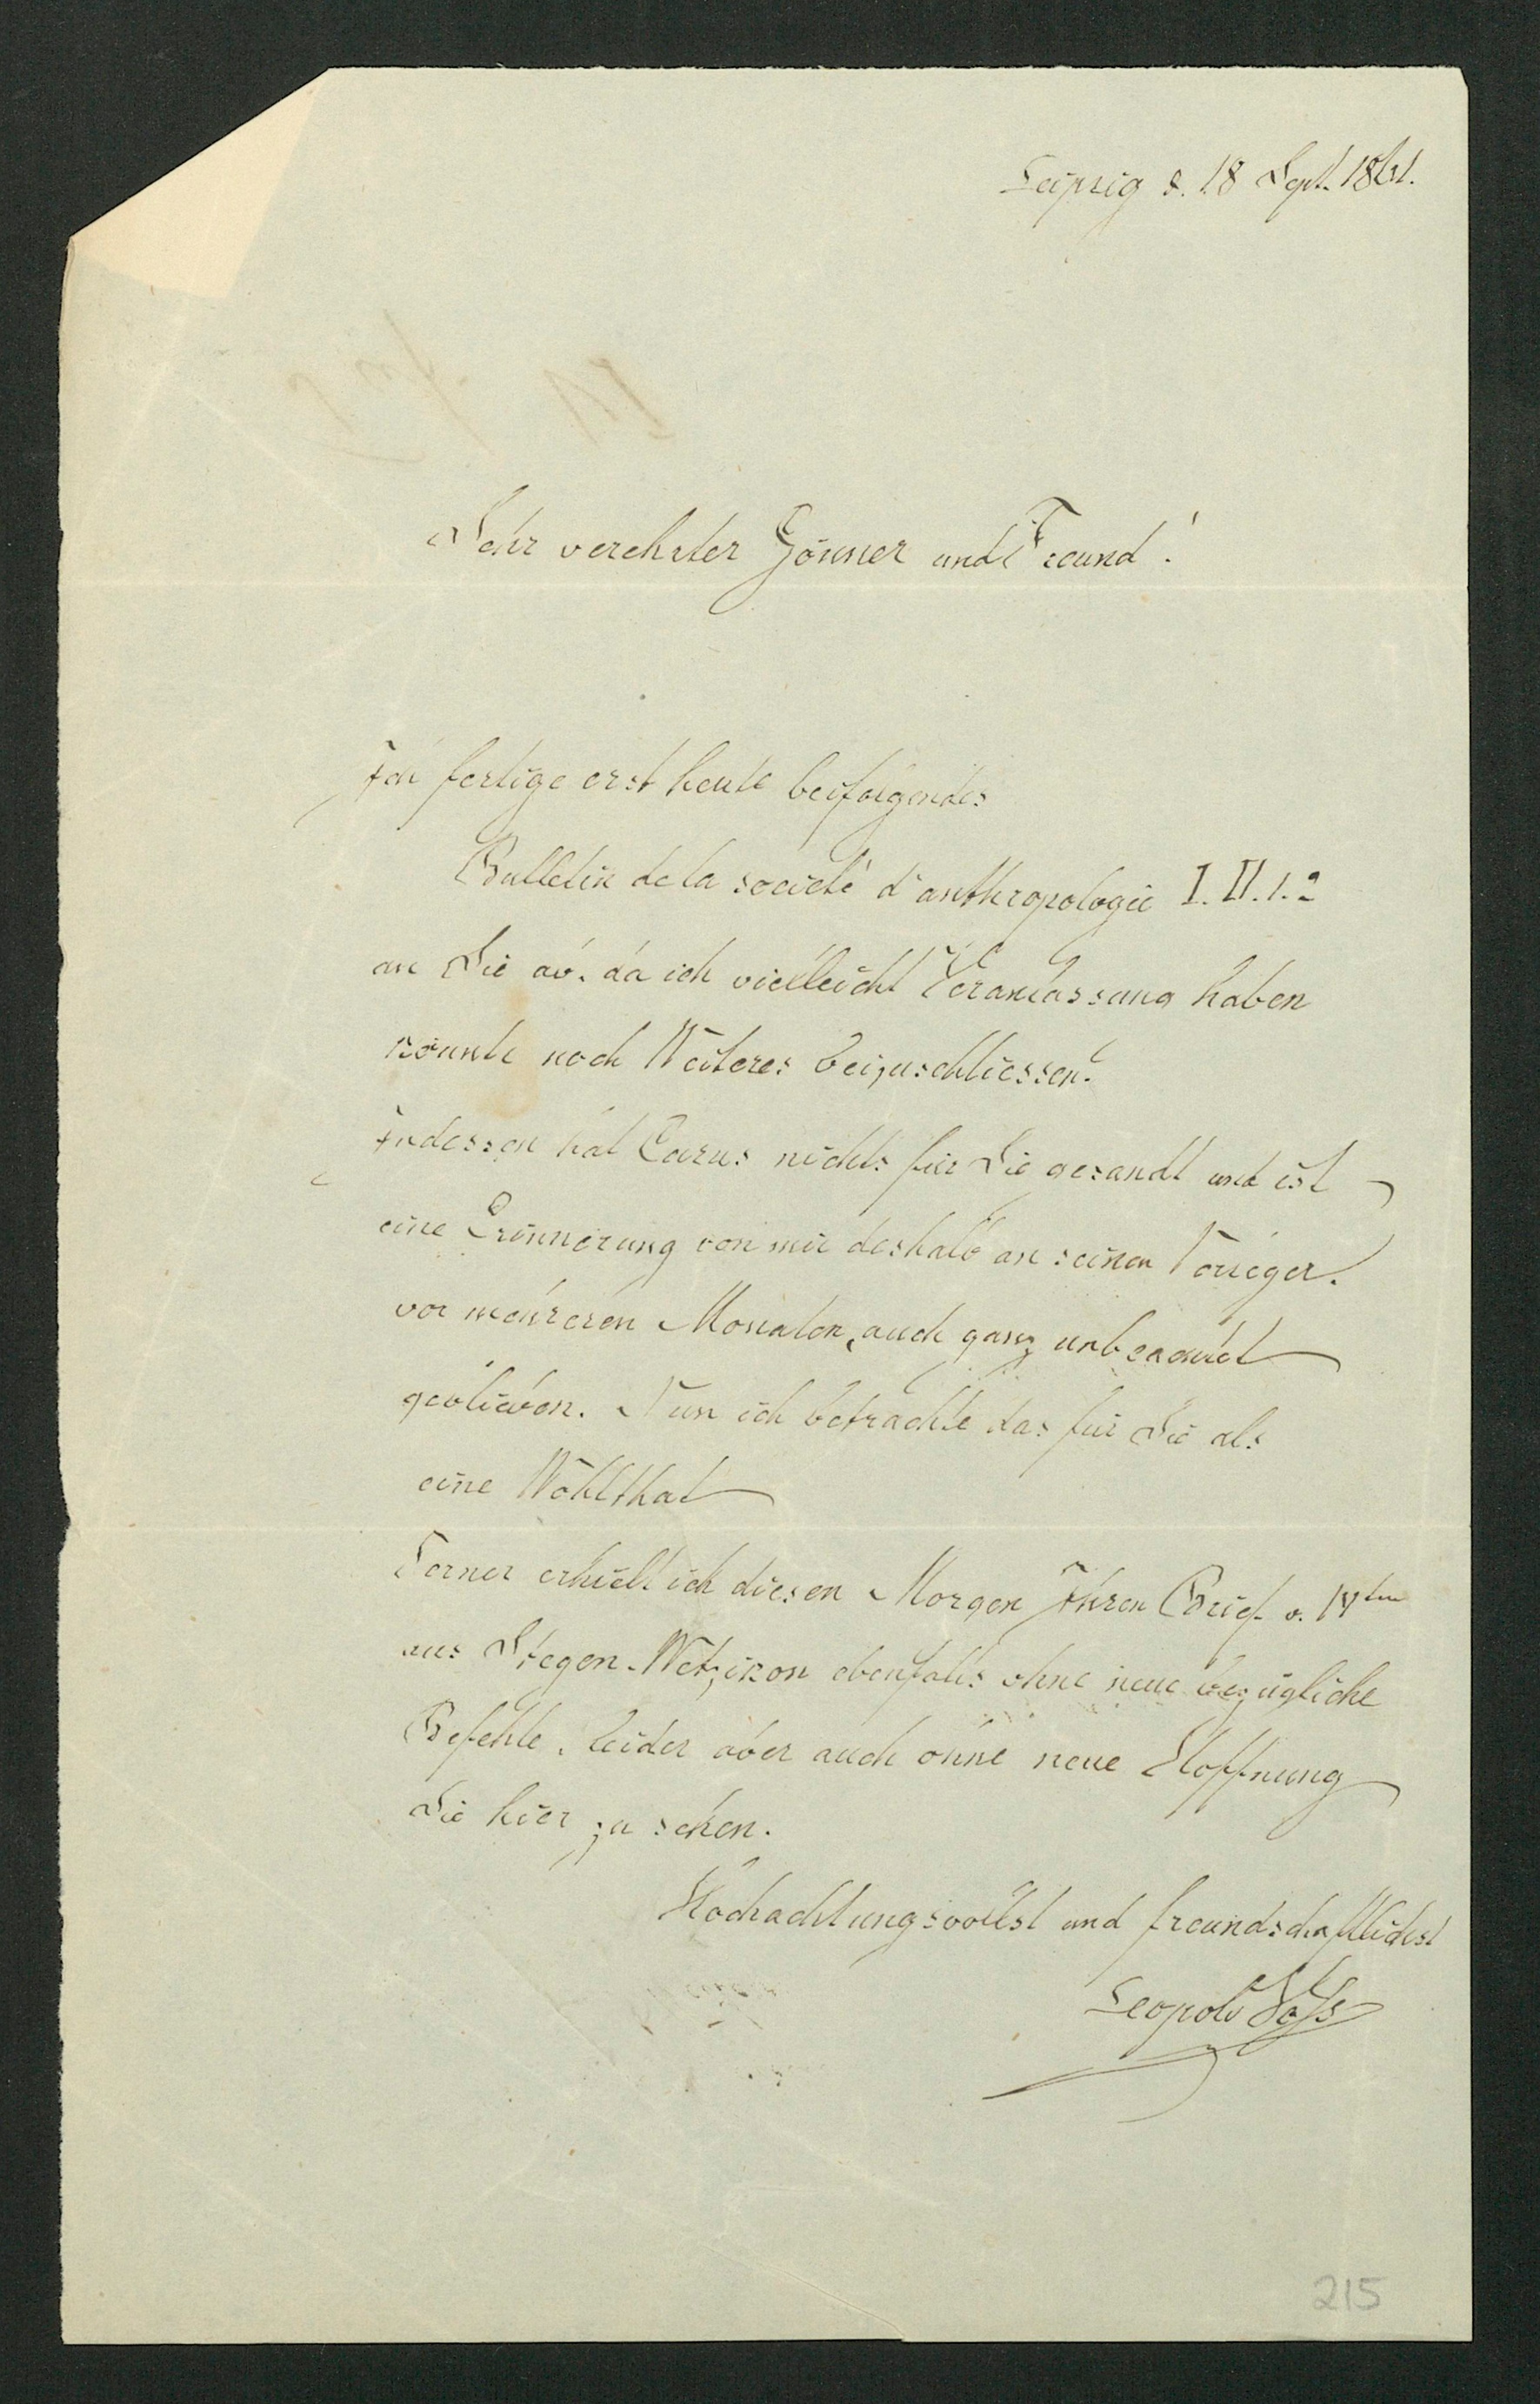 Leipzig d. 18 Sept. 1861.
Sehr verehrter Gönner und Freund!
Ich fertige erst heute beifolgendes
Bulletin de la société d'anthropologie I. II. 1. 2
an Sie ab, da ich vielleicht Veranlassung haben
könnte noch Weiteres beizuschliessen.
Indessen hat Carus nichts für Sie gesandt und ist
eine Erinnerung von mir deshalb an seinen
vor mehreren Monaten, auch ganz unbeachtet
geblieben. Nun ich betrachte das für Sie als
eine Wohlthat
Ferner erhielt ich diesen Morgen Ihren Brief v.
aus Stegen-Wetzikon ebenfalls ohne neue bezügliche
Befehle, leider aber auch ohne neue Hoffnung
Sie hier zu sehen.
Hochachtungsvollst und freundschaftlichst
Leopold Voſs
215